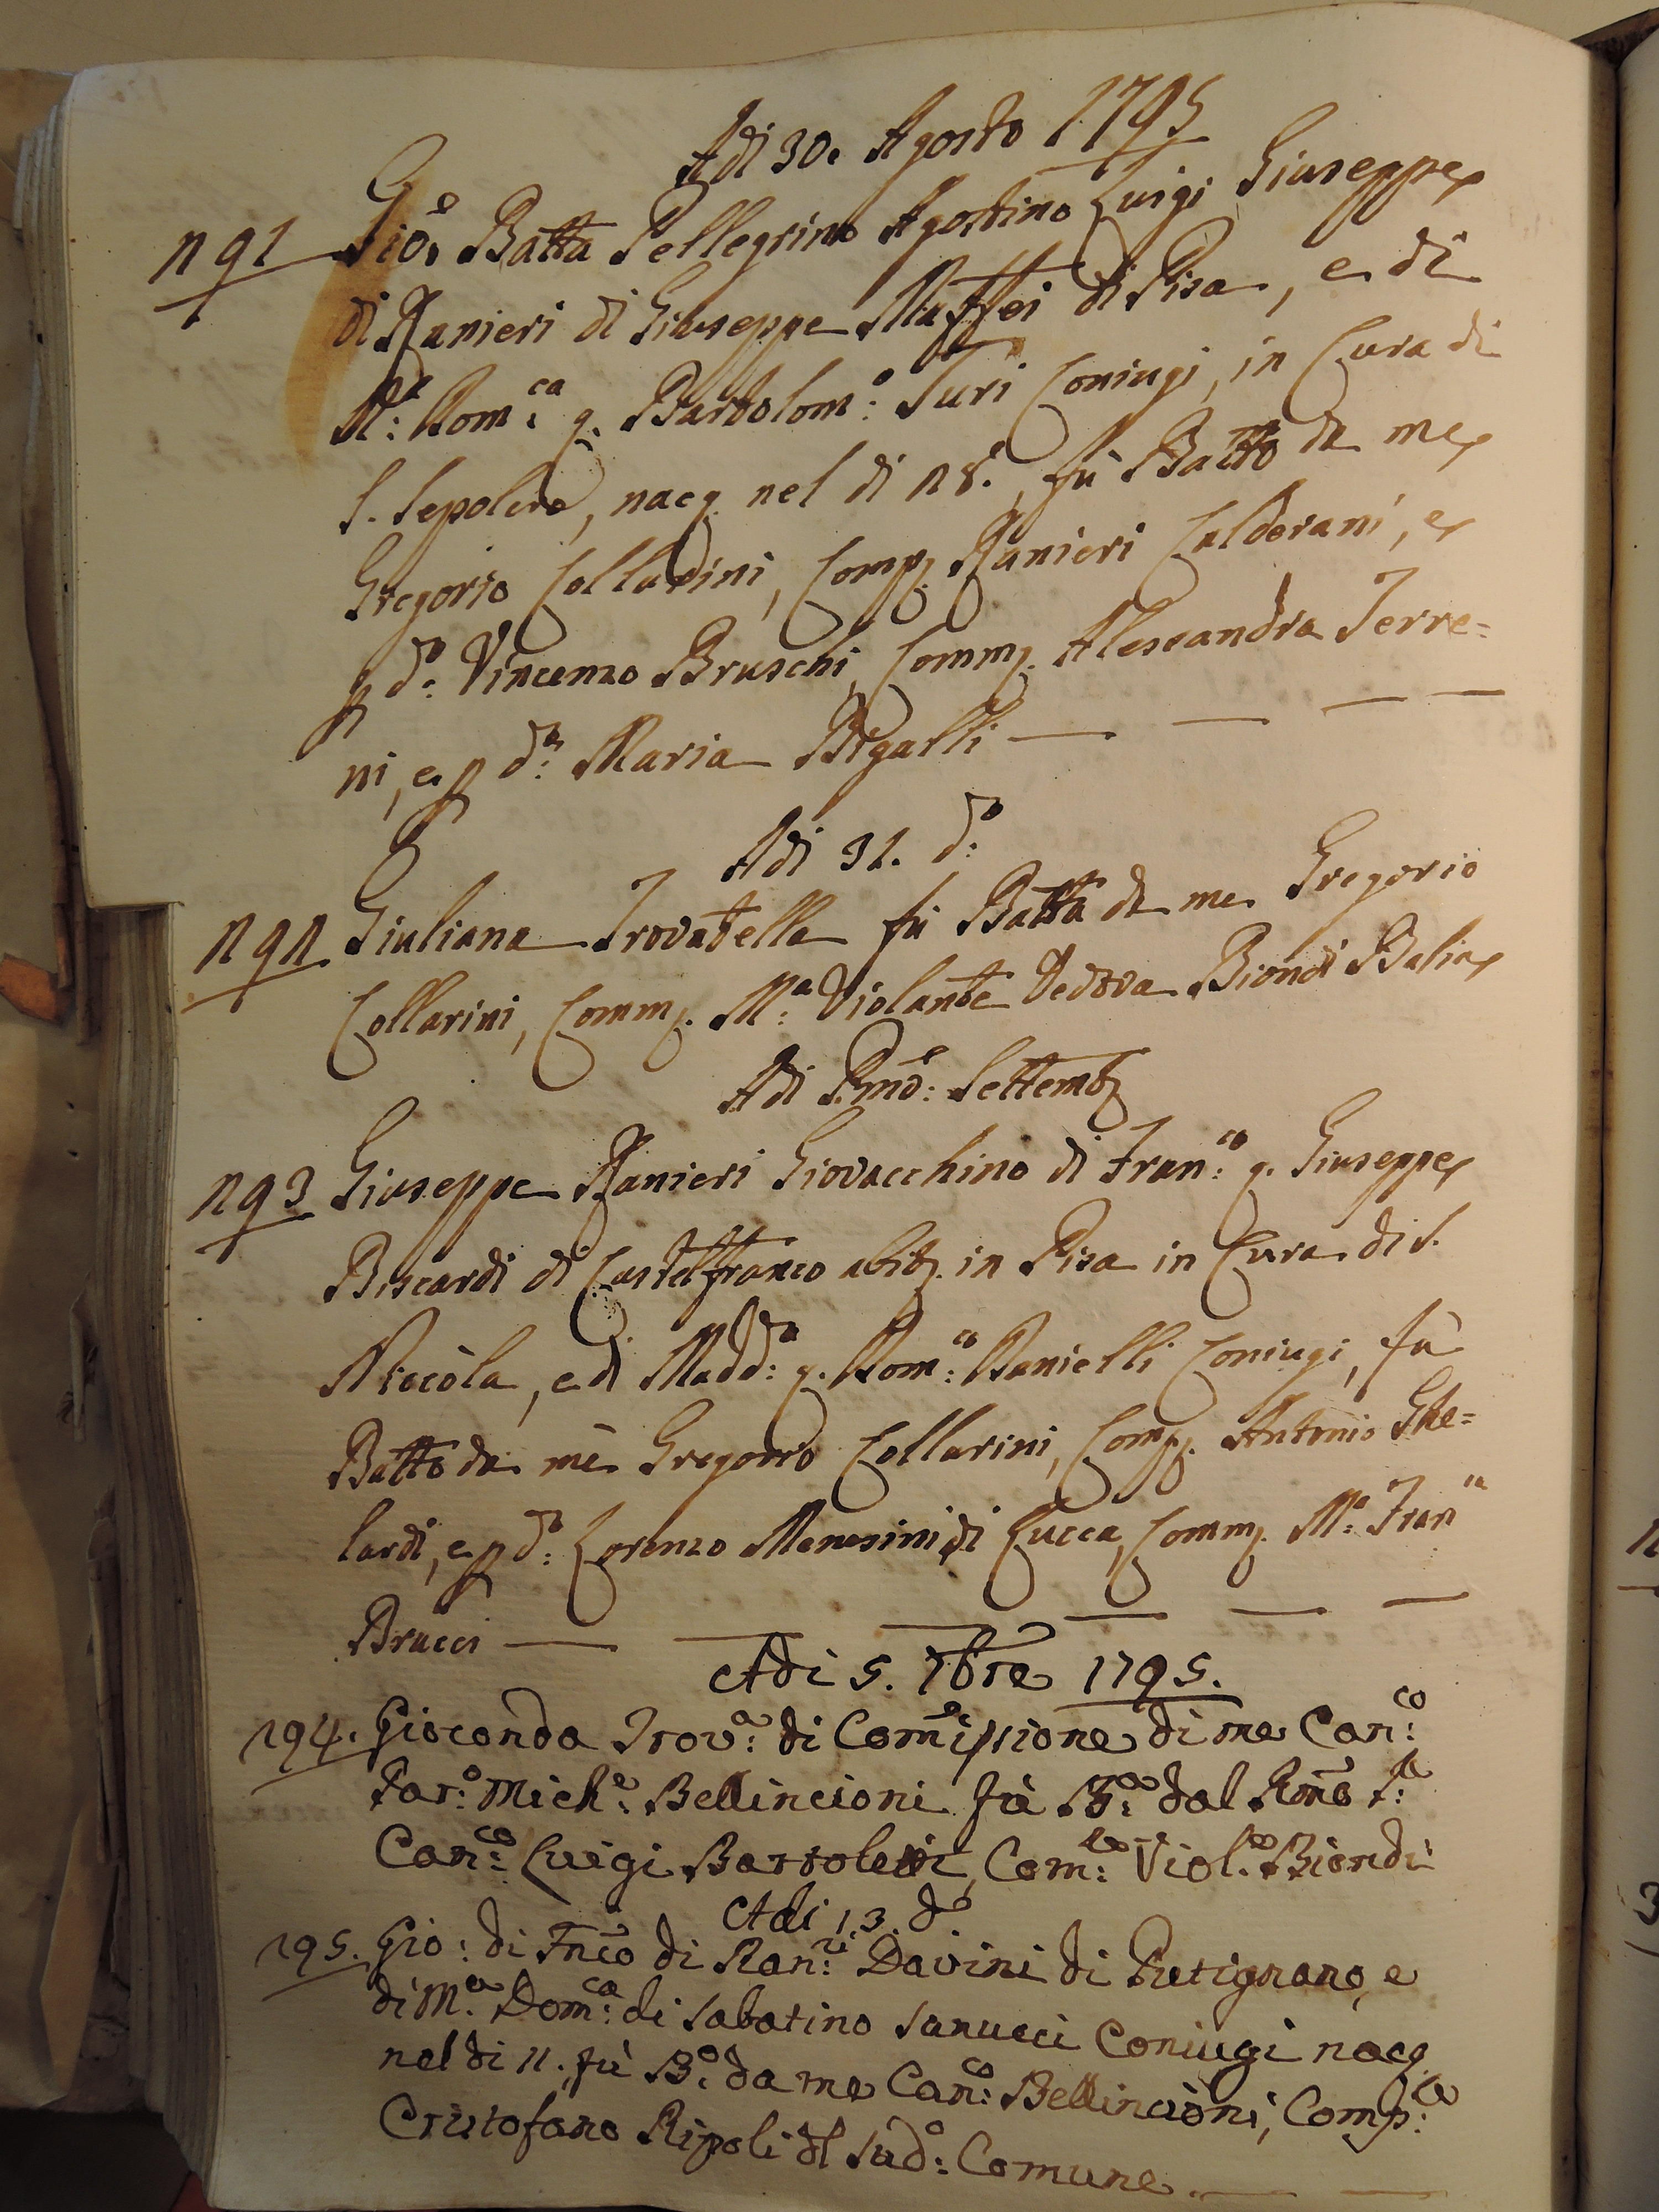 Adì 30. Agosto 1795
191 Gio: Batta Pellegrino Agostino Luigi Giuseppe
di Ranieri di Giuseppe Maffei di Pisa, e di
M:ª Dom:ca q. Bartolom:º Turi Coniugi, in Cura di
S. Sepolcro, nacq. nel dì 28., fù Batto da me
Gregorio Collarini, Comp. Ranieri Calderani, e
p d:º Vincenzo Bruschi, Comm. Alessandra Terre=
ni, e p d:ª Maria Bigalli
Adì 31. d:º
192 Giuliana Trovatella fù Batta da me Gregorio
Collarini, Comm. M:ª Violante Vedova Biondi Balia
Adì Pmo: Settemb
193 Giuseppe Ranieri Giovacchino di Fran:co q. Giuseppe
Biscardi di Castelfranco abit. in Pisa in Cura di S.
Niccola, e di Madd:ª q. Dom:co Danielli Coniugi, fù
Batto da me Gregorio Collarini, Comp. Antonio Ghe=
lardi, e p d:º Lorenzo Menesini di Lucca, Comm. M:ª Fran:ca
Brucci
Adi 5. 7bre 1795.
194. Gioconda Trov:ª di Comissione di me Can:co
Par:º Mich:e Bellincioni fù B:ª dal Rmo S:re
Can:co Luigi Bartoletti, Com:re Viol:e Biondi
Adi 13. dº
195. Gio: di Fnco di Ran:ri Davini di Putignano, e
di M:ª Dom:ca di Sabatino Sanucci Coniugi nacq
nel di 11. fù B:º da me Can:co Bellincioni, Comp:re
Cristofano Ripoli dl sud:º Comune.